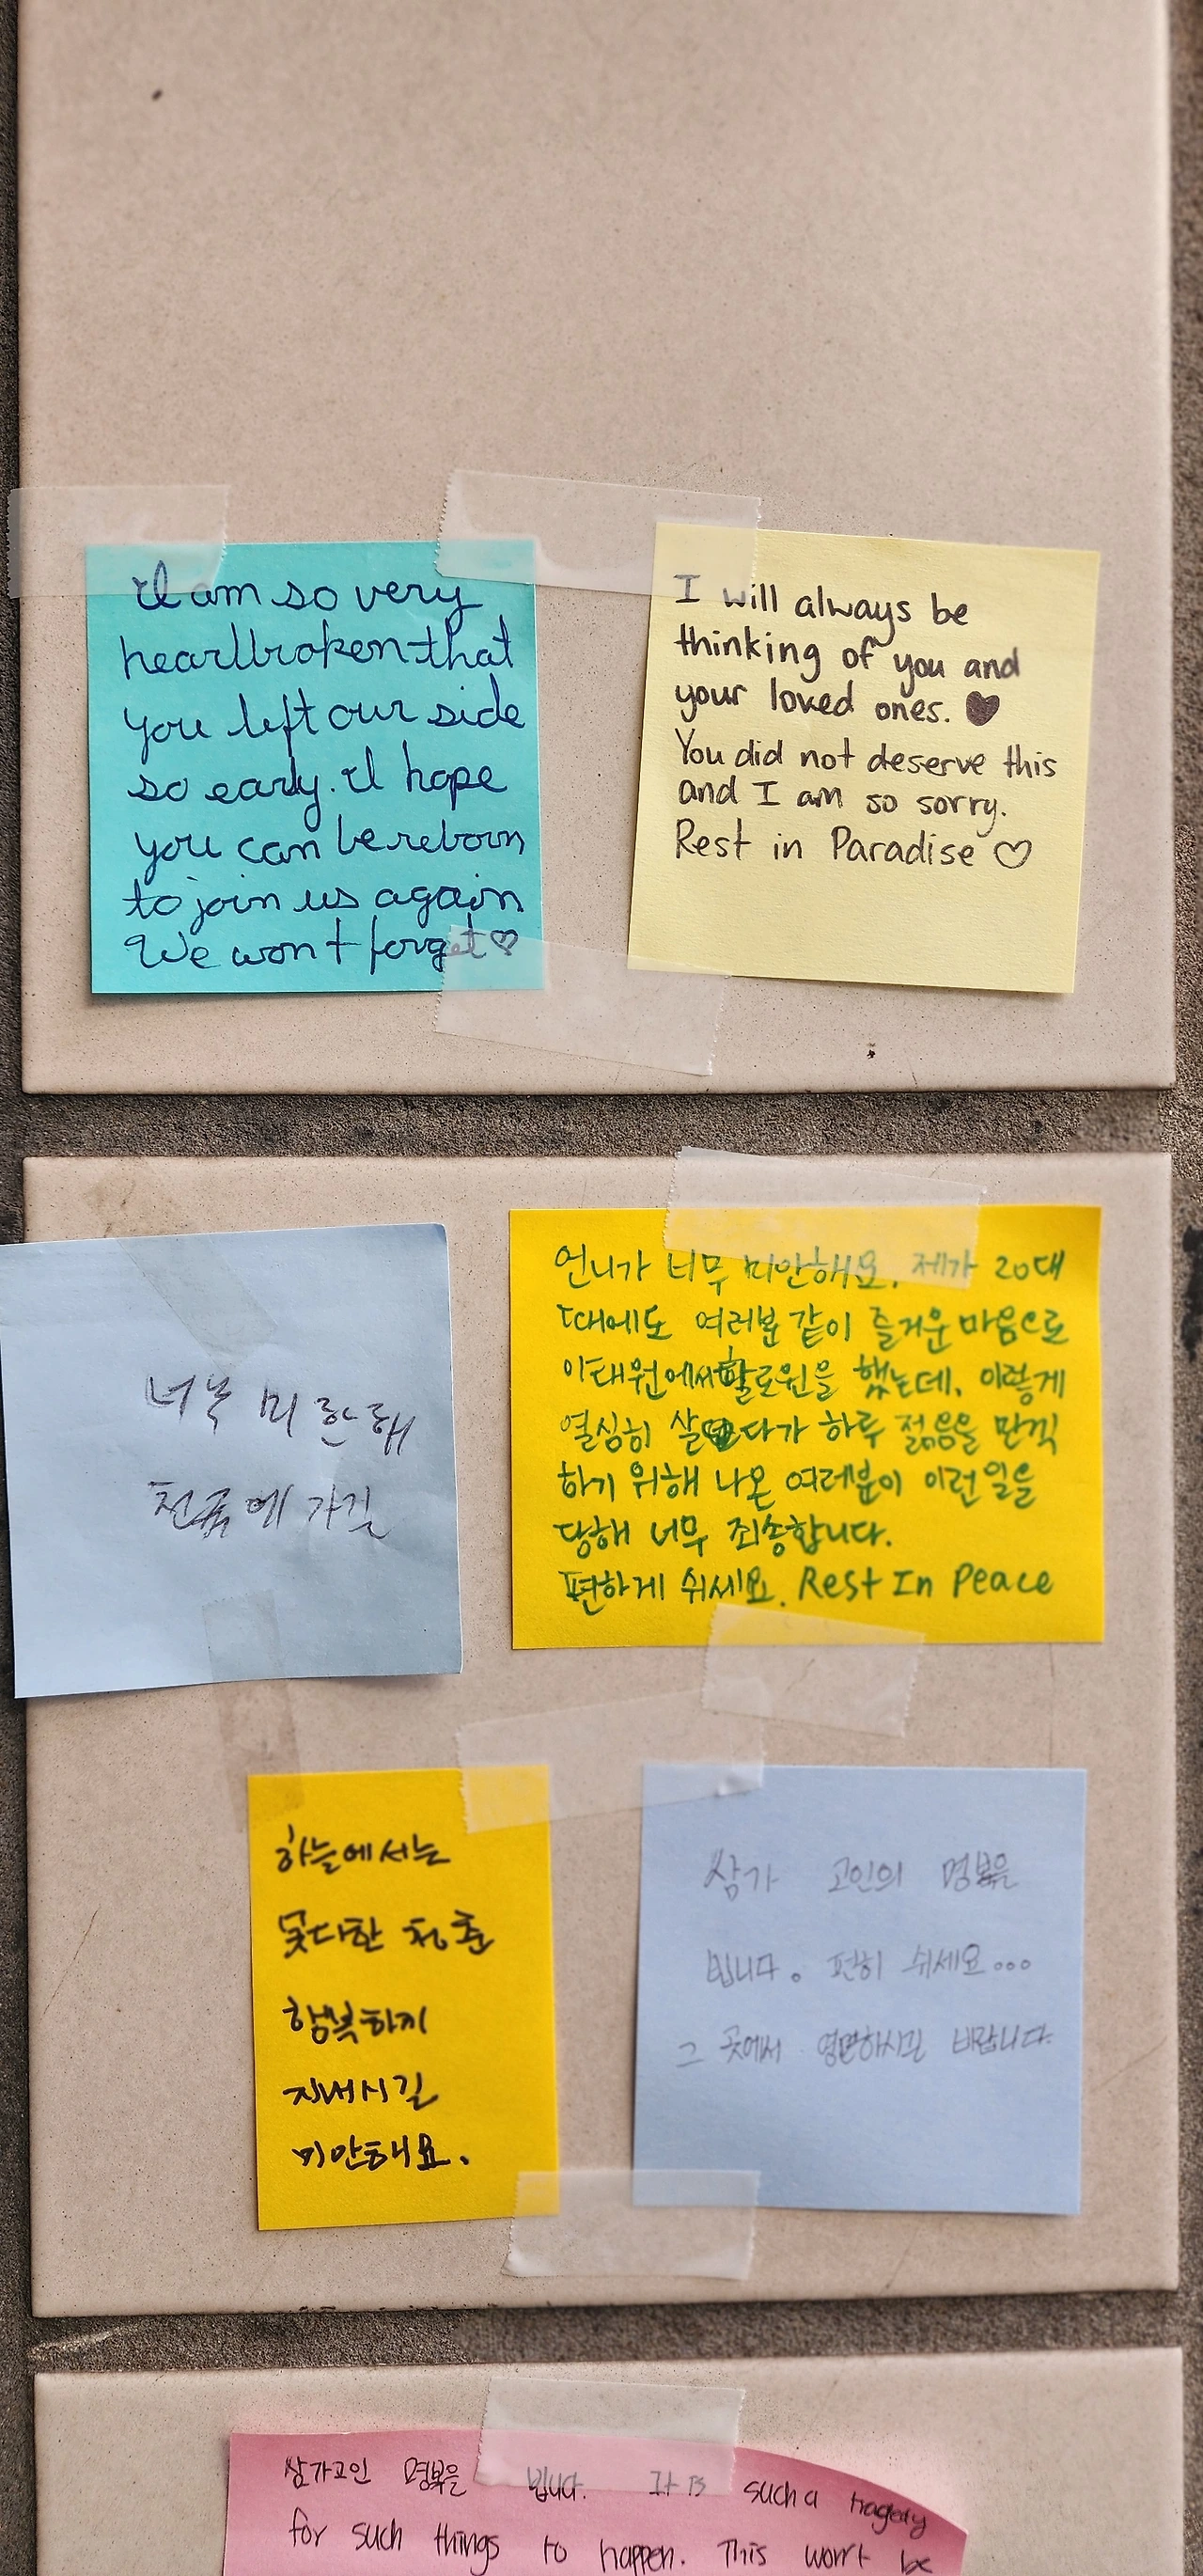 I am so very
heartbroken that
you left our side
so early. I hope
you can be reborn
to join us again
We won't forget♡
I will always be
thinking of you and
your loved ones. ♥
You did not deserve this
and I am so sorry.
Rest in Paradise ♡
너무 미안해
천국에 가길
언니가 너무 미안해요. 제가 20대
때에도 여러분 같이 즐거운 마음으로
이태원에서 할로윈을 했는데, 이렇게
열심히 살다가 하루 젊음을 만끽
하기 위해 나온 여러분이 이런 일을
당해 너무 죄송합니다.
편하게 쉬세요. Rest In Peace
하늘에서는
못다한 청춘
행복하게
지내시길
미안해요.
삼가 고인의 명복을
빕니다. 편히 쉬세요...
그 곳에서 영면하시길 바랍니다.
삼가고인 명복을 빕니다. It is such a tragedy
for such things to happen. This won't be